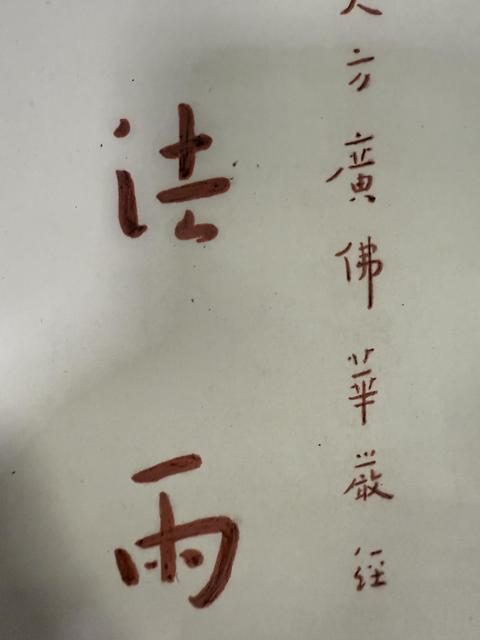 大方廣佛華嚴經
法雨